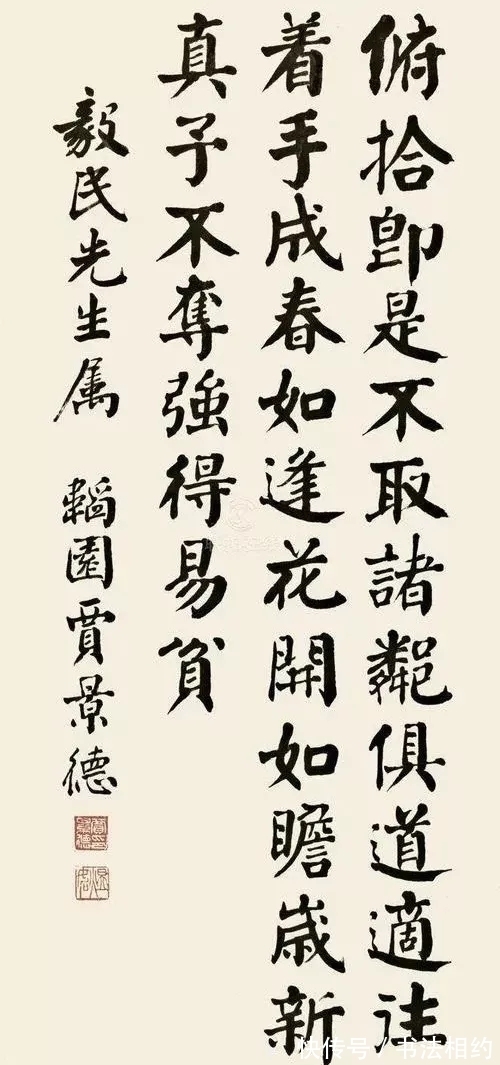 俯拾卽是不取諸鄰俱道適往
着手成春如逢花開如瞻歲新
真予不奪強得易貧
毅民先生属 韜園賈景德
快传号/书法相约